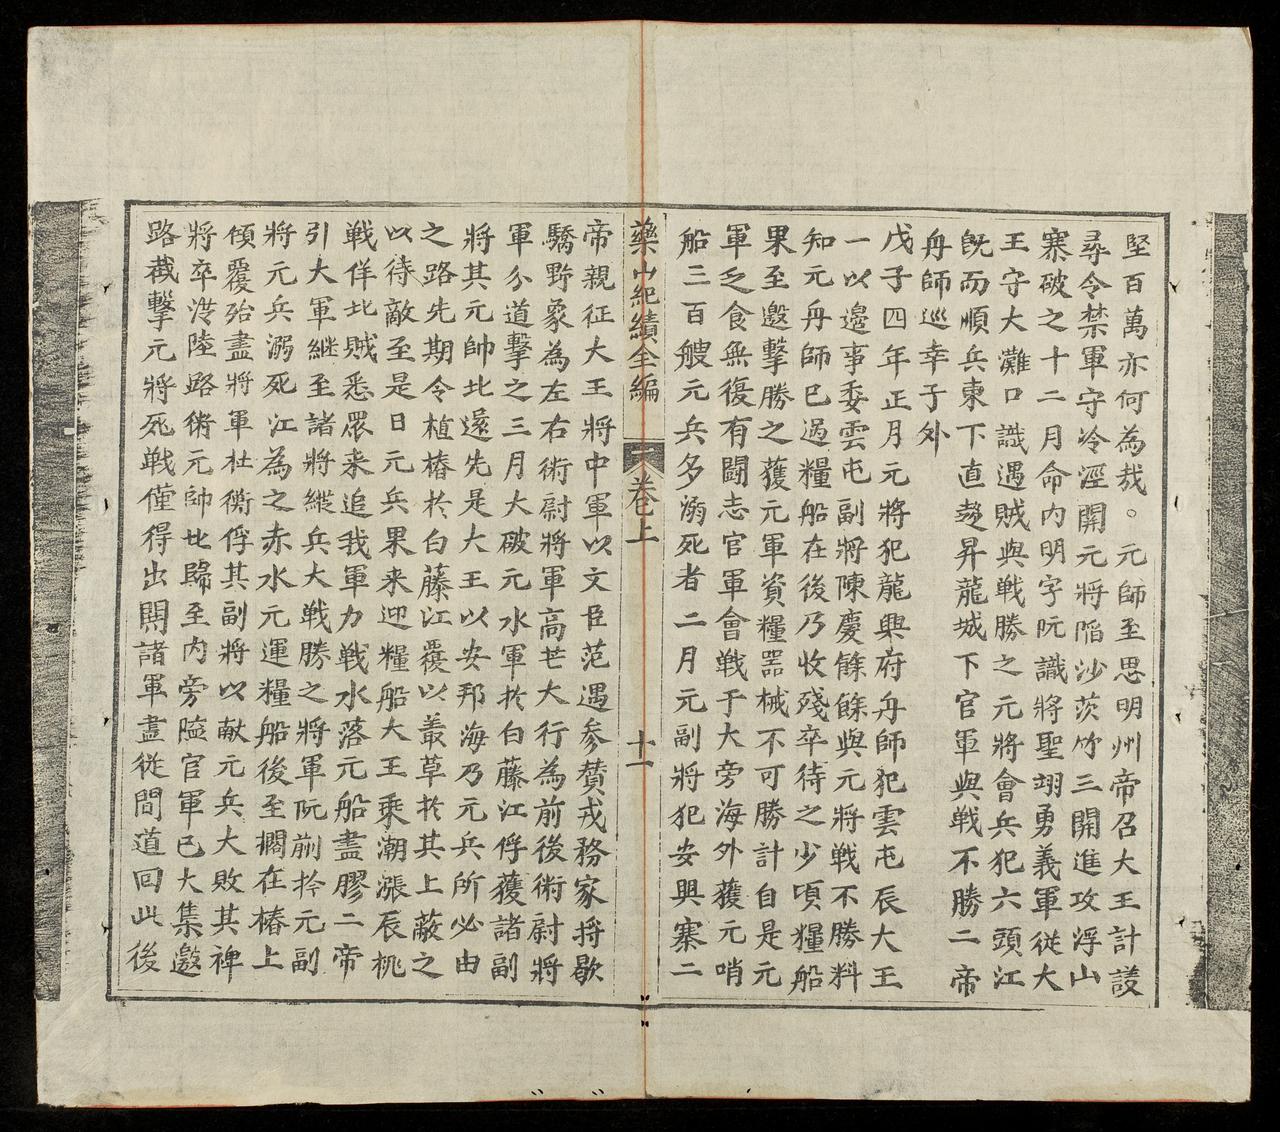 堅百萬亦何為哉。元師至思明州帝召大王計議
尋令禁軍守冷涇關元將陷沙茨竹三關進攻浮山
寨破之十二月命內明字阮識將聖翊勇義軍從大
王守大灘口識遇賊與戦勝之元將會兵犯六頭江
既而順兵東下直趍昇龍城下官軍與戦不勝二帝
舟師巡幸于外
戊子四年正月元將犯龍興府舟師犯雲屯辰大王
一以邊事委雲屯副將陳慶餘餘與元將戦不勝料
知元舟師已過糧船在後乃收殘卒待之少頃糧船
果至邀擊勝之獲元軍資糧噐械不可勝計自是元
軍乏食無復有鬪志官軍會戦于大旁海外獲元哨
船三百艘元兵多溺死者二月元副將犯安興寨二
藥山紀績全編 卷上 十一
帝親征大王將中軍以文臣范遇参賛戎務家將歇
驕野象為左右術尉將軍高芒大行為前後術尉將
軍分道擊之三月大破元水軍於白藤江俘獲諸副
將其元帥北還先是大王以安邦海乃元兵所必由
之路先期令植樁於白藤江覆以叢草於其上蔽之
以待敵至是日元兵果来迎糧船大王乘潮漲辰挑
戦佯北賊悉眾来追我軍力戦水落元船盡膠二帝
引大軍継至諸將縱兵大戦勝之將軍阮蒯拎元副
將元兵溺死江為之赤水元運糧船後至擱在樁上
傾覆殆盡將軍杜衡俘其副將以献元兵大敗其裨
將卒涉陸路術元帥北歸至內旁隘官軍已大集邀
路截擊元將死戦僅得出関諸軍盡從間道回此後